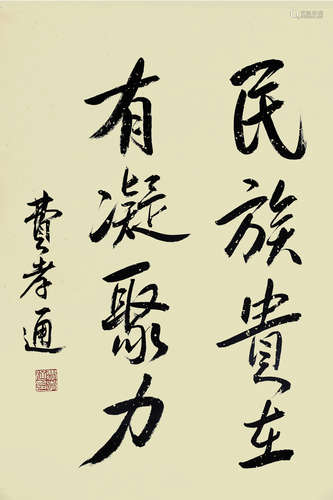 民族貴在
有凝聚力
費孝通